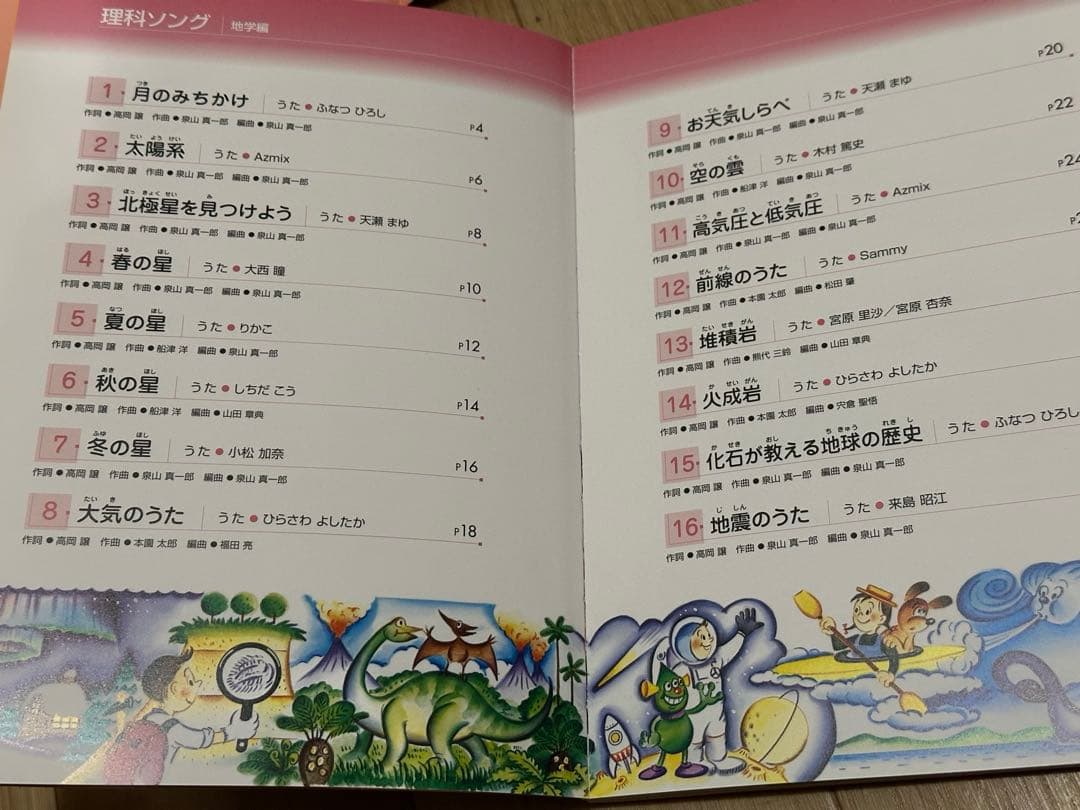 理科ソング 地学編
1 月のみちかけ うた●ふなつ ひろし
作詞●高岡 譲 作曲●泉山 真一郎 編曲●泉山 真一郎 P4
2 太陽系 うた●Azmix
作詞●高岡 譲 作曲●泉山 真一郎 編曲●泉山 真一郎 P6
3 北極星を見つけよう うた●天瀬 まゆ
作詞●高岡 譲 作曲●泉山 真一郎 編曲●泉山 真一郎 P8
4 春の星 うた●大西 瞳
作詞●高岡 譲 作曲●泉山 真一郎 編曲●泉山 真一郎 P10
5 夏の星 うた●りかこ
作詞●高岡 譲 作曲●船津 洋 編曲●泉山 真一郎 P12
6 秋の星 うた●しちだ こう
作詞●高岡 譲 作曲●船津 洋 編曲●山田 章典 P14
7 冬の星 うた●小松 加奈
作詞●高岡 譲 作曲●泉山 真一郎 編曲●泉山 真一郎 P16
8 大気のうた うた●ひらさわ よしたか
作詞●高岡 譲 作曲●本園 太郎 編曲●福田 亮 P18
9 お天気しらべ うた●天瀬 まゆ P20
作詞●高岡 譲 作曲●泉山 真一郎 編曲●泉山 真一郎
10 空の雲 うた●木村 篤史 P22
作詞●高岡 譲 作曲●船津 洋 編曲●泉山 真一郎
11 高気圧と低気圧 うた●Azmix P24
作詞●高岡 譲 作曲●泉山 真一郎 編曲●泉山 真一郎
12 前線のうた うた●Sammy
作詞●高岡 譲 作曲●本園 太郎 編曲●松田 肇
13 堆積岩 うた●宮原 里沙/宮原 杏奈
作詞●高岡 譲 作曲●熊代 三鈴 編曲●山田 章典
14 火成岩 うた●ひらさわ よしたか
作詞●高岡 譲 作曲●本園 太郎 編曲●宍倉 聖悟
15 化石が教える地球の歴史 うた●ふなつ ひろし
作詞●高岡 譲 作曲●泉山 真一郎 編曲●泉山 真一郎
16 地震のうた うた●来島 昭江
作詞●高岡 譲 作曲●泉山 真一郎 編曲●泉山 真一郎